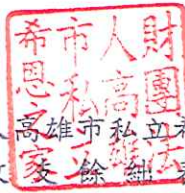 財團法
人高雄
市私立
希恩之家
高雄市私立
餘絀